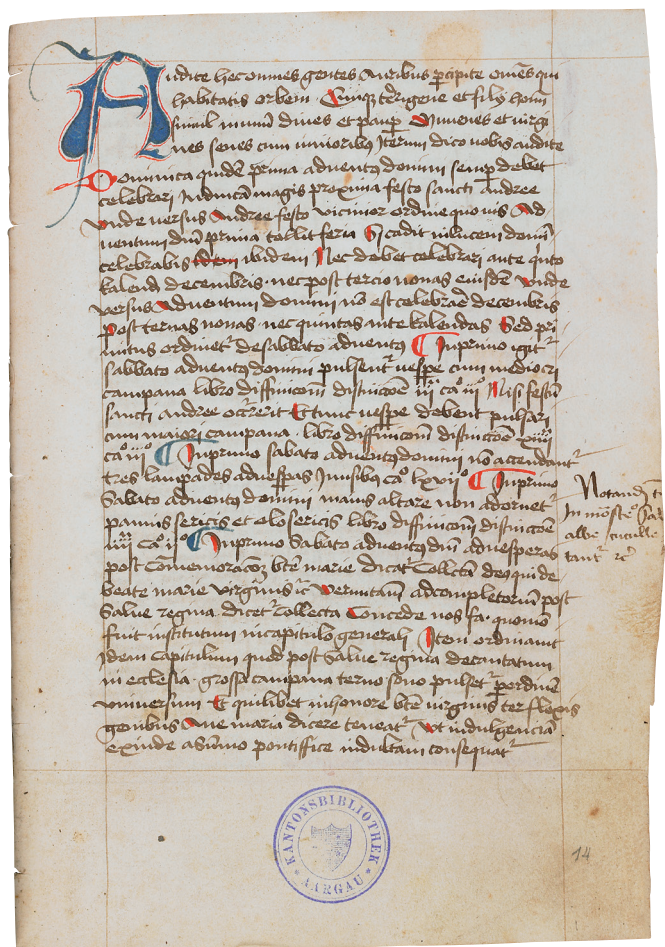 Audite hec omnes gentes Auribus percipite omes qui
habitatis orbem Quiqz terrigene et filij homi
simul in unu diues et paup Juuenes et virgi
nes senes cum iunioribus Iterum dico vobis audite
Dominica quide prima aduentus domini semp debet
celebrari magis proxima festo sancti Andree
Vnde versus Andree festo vicinior ordine quouis Ad
uentum dni prima tollit feria Si cadit in lucem domi
celebrabis ibidem Nec debet celebrari ante quito
kalend decembris nec post tercio nonas eiusde Vnde
versus Aduentum domini no est celebrare decembris
Post ternas nonas nec quintas ante kalendas Sed pri
mitus ordinet de sabbato aduentus In primo igit
sabbato aduentus domini pulsent vespe cum mediocri
campana libro diffinicom distinctoe iij ca iij Nisi festu
sancti andree occrerit Et tunc vespe debent pulsari
cum maiori campana libro diffinicom distinctoe xiiij
ca iij In primo sabato aduentus domini no accendant
tres lampades ad vespas In usibus ca lxvij In primo
Sabato aduentus domini maius altare non adornet
pannis sericis et olosericis libro diffinicom distinctoe
iiij ca ij In primo Sabato aduentus dni ad vesperas
post Comemoracoz bte marie dicat Collcta deus qui de
beate marie virginis ic Verumtam ad completorium post
Salue regina dicet Collecta Concede nos fa quomo
fuit institutum in capitulo generali Item ordinauit
Idem Capitulum quod post Salue regina decantatum
in ecclesia grossa campana terno sono pulset per ordine
vniuersum Et quilibet in honore bte virginis ter flexis
genibus Aue maria dicere teneat Vt indulgencia
exinde a sumo pontiffice indultam consequat
Notand
In moste
albe cuculle
tant rc
KANTONSBIBLIOTHEK
AARGAU
14